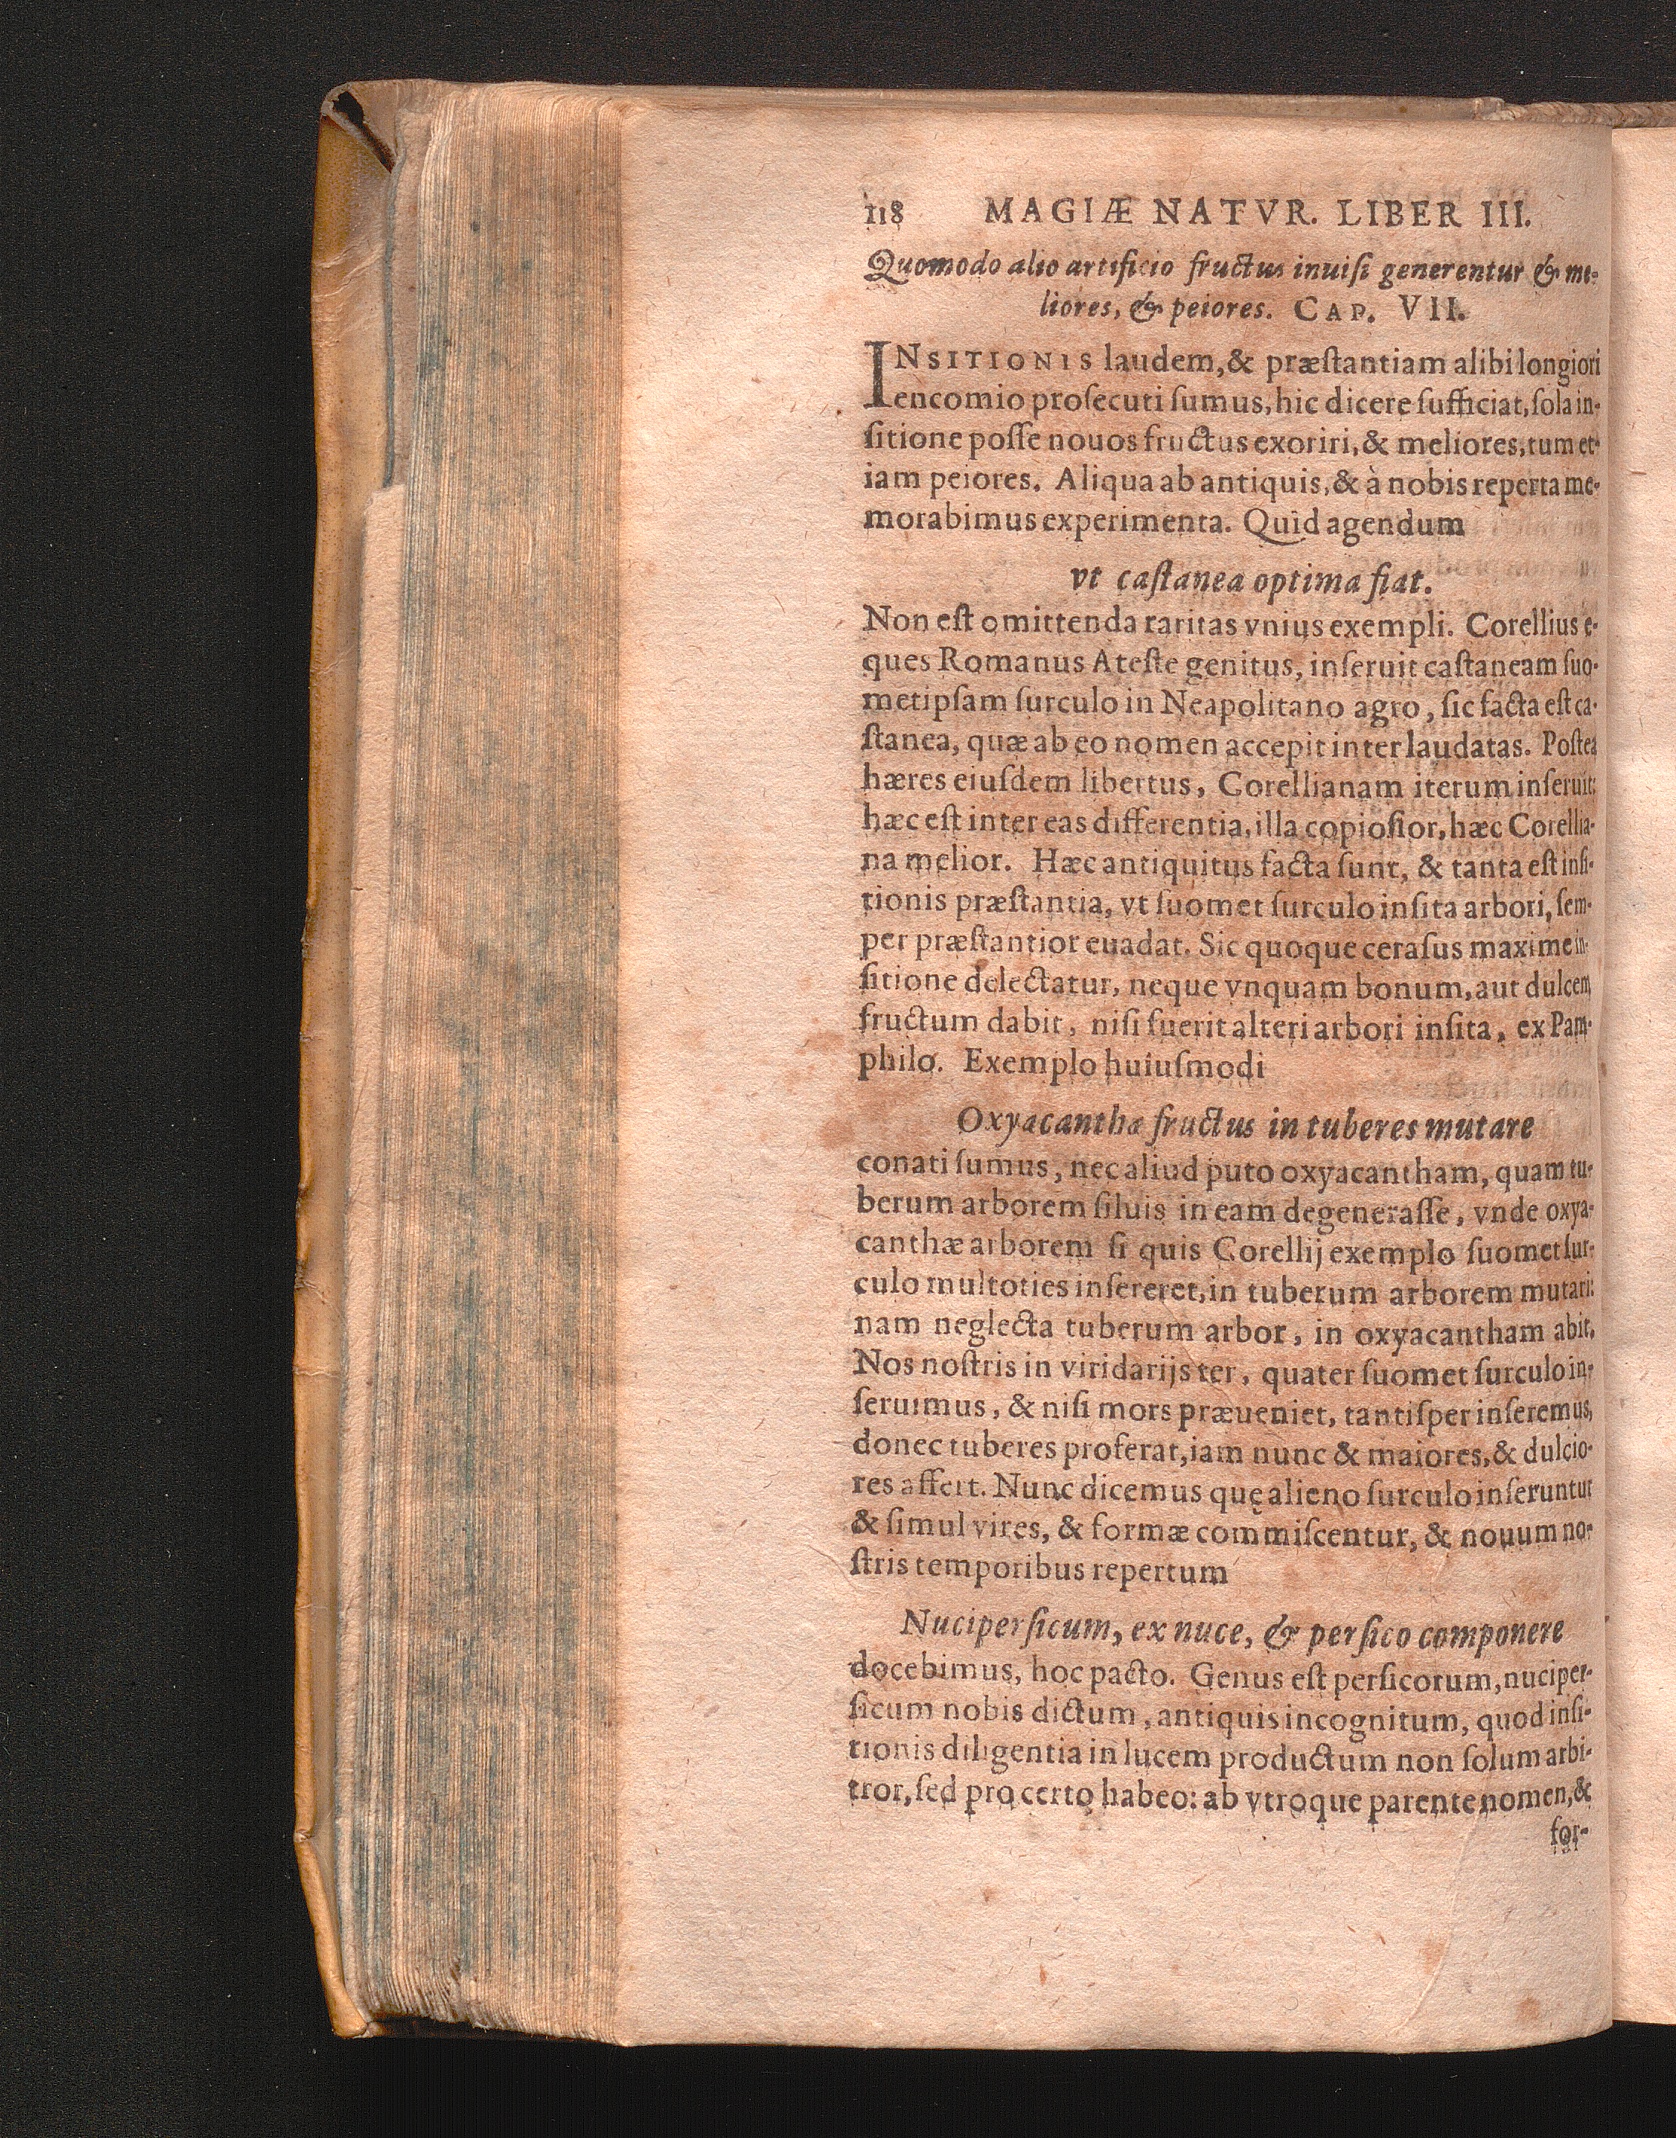 118 MAGIÆ NATVR. LIBER III.
Quomodo alio artificio fructus inuiſi generentur & me-
liores, & peiores. CAP. VII.
INSITIONIS laudem, & præſtantiam alibi longiori
encomio proſecuti ſumus, hic dicere ſufficiat, ſola in-
ſitione poſſe nouos fructus exoriri, & meliores, tum et-
iam peiores. Aliqua ab antiquis, & à nobis reperta me-
morabimus experimenta. Quid agendum
vt caſtanea optima fiat.
Non eſt omittenda raritas vnius exempli. Corellius e-
ques Romanus Ateſte genitus, inſeruit caſtaneam ſuo-
metipſam ſurculo in Neapolitano agro, ſic facta eſt ca-
ſtanea, quæ ab eo nomen accepit inter laudatas. Poſtea
hæres eiuſdem libertus, Corellianam iterum inſeruit:
hæc eſt inter eas differentia, illa copioſior, hæc Corellia-
na melior. Hæc antiquitus facta ſunt, & tanta eſt inſi-
tionis præſtantia, vt ſuomet ſurculo inſita arbori, ſem-
per præſtantior euadat. Sic quoque ceraſus maxime in-
ſitione delectatur, neque vnquam bonum, aut dulcem
fructum dabit, niſi fuerit alteri arbori inſita, ex Pam-
philo. Exemplo huiuſmodi
Oxyacanthæ fructus in tuberes mutare
conati ſumus, nec aliud puto oxyacantham, quam tu-
berum arborem ſiluis in eam degeneraſſe, vnde oxya-
canthæ arborem ſi quis Corellij exemplo ſuomet ſur-
culo multoties inſereret, in tuberum arborem mutari:
nam neglecta tuberum arbor, in oxyacantham abit.
Nos noſtris in viridarijs ter, quater ſuomet ſurculo in-
ſeruimus, & niſi mors præueniet, tantiſper inſeremus,
donec tuberes proferat, iam nunc & maiores, & dulcio-
res affert. Nunc dicemus quę alieno ſurculo inſeruntur
& ſimul vires, & formæ commiſcentur, & nouum no-
ſtris temporibus repertum
Nuciperſicum, ex nuce, & perſico componere
docebimus, hoc pacto. Genus eſt perſicorum, nuciper-
ſicum nobis dictum, antiquis incognitum, quod inſi-
tionis diligentia in lucem productum non ſolum arbi-
tror, ſed pro certo habeo: ab vtroque parente nomen, &
for-